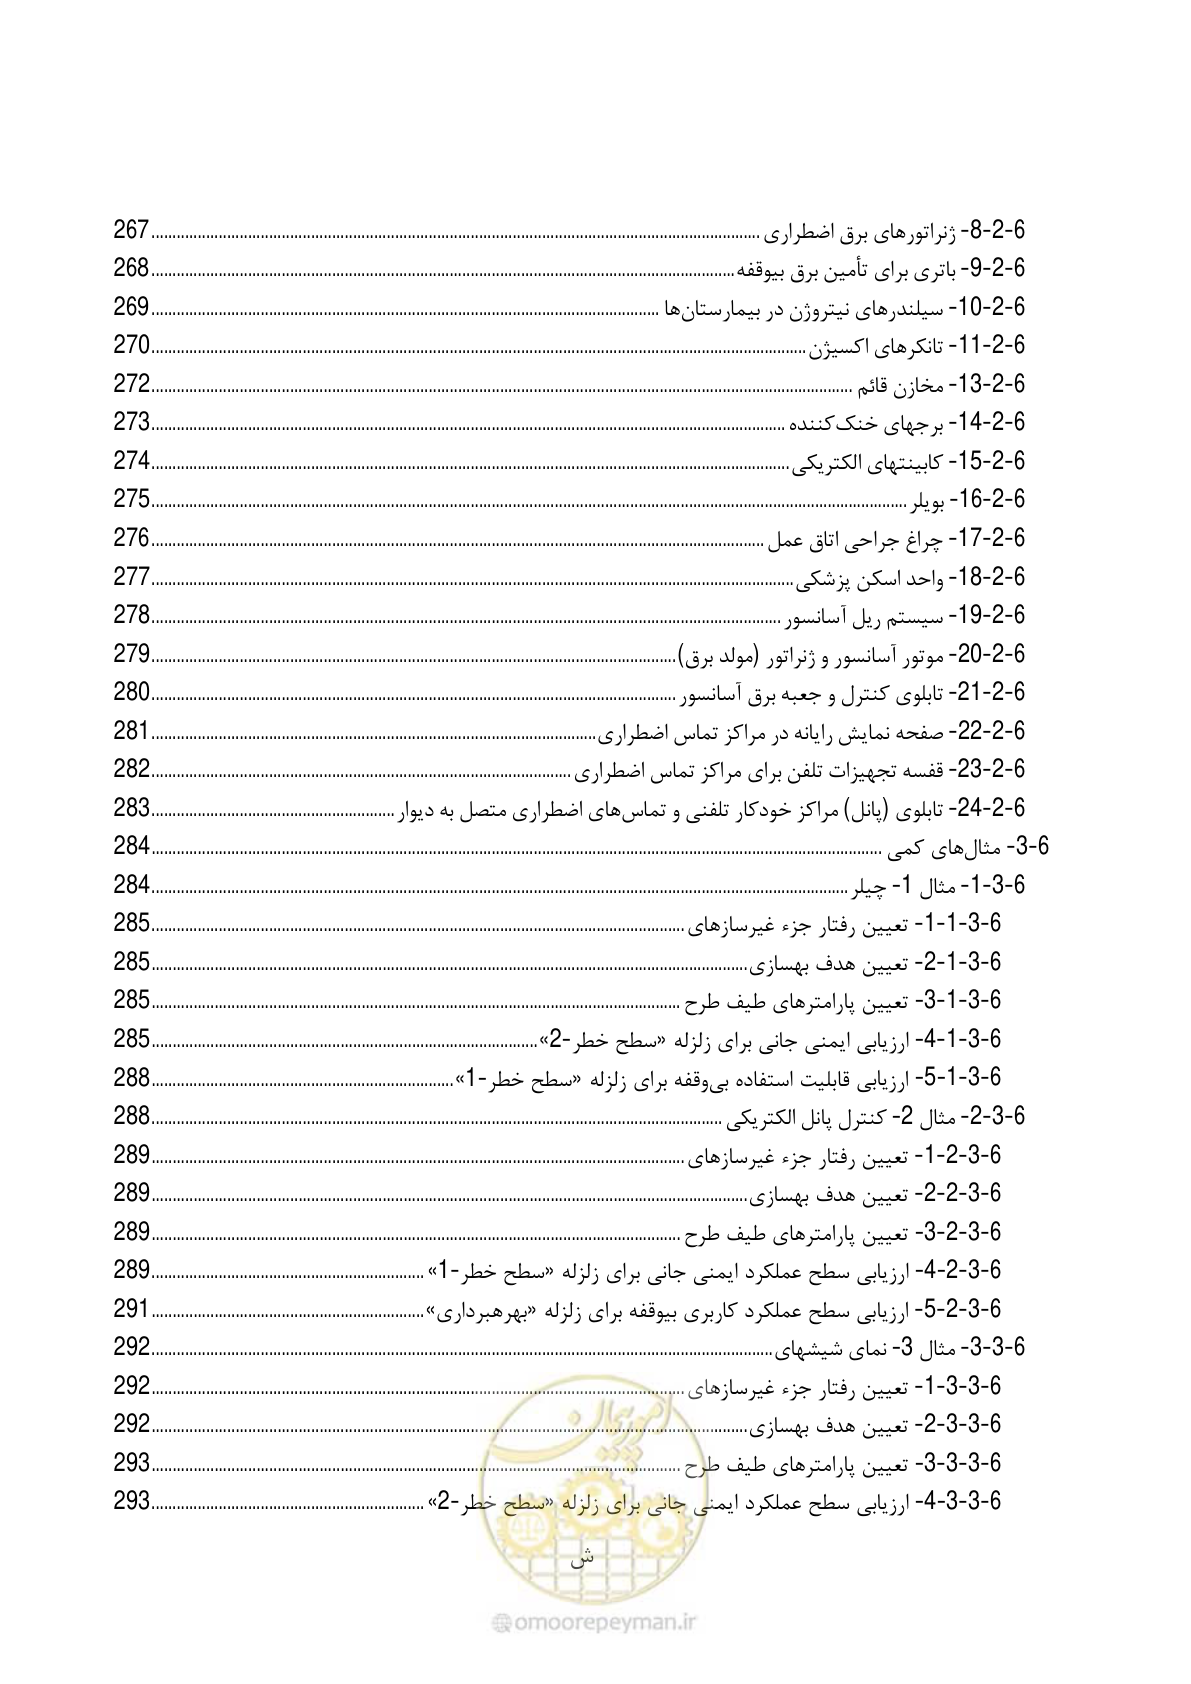 6-2-8- ژنراتورهای برق اضطراری ........ 267
6-2-9- باتری برای تأمین برق بیوقفه ........ 268
6-2-10- سیلندرهای نیتروژن در بیمارستان‌ها ........ 269
6-2-11- تانکرهای اکسیژن ........ 270
6-2-13- مخازن قائم ........ 272
6-2-14- برجهای خنک‌کننده ........ 273
6-2-15- کابینتهای الکتریکی ........ 274
6-2-16- بویلر ........ 275
6-2-17- چراغ جراحی اتاق عمل ........ 276
6-2-18- واحد اسکن پزشکی ........ 277
6-2-19- سیستم ریل آسانسور ........ 278
6-2-20- موتور آسانسور و ژنراتور (مولد برق) ........ 279
6-2-21- تابلوی کنترل و جعبه برق آسانسور ........ 280
6-2-22- صفحه نمایش رایانه در مراکز تماس اضطراری ........ 281
6-2-23- قفسه تجهیزات تلفن برای مراکز تماس اضطراری ........ 282
6-2-24- تابلوی (پانل) مراکز خودکار تلفنی و تماس‌های اضطراری متصل به دیوار ........ 283
6-3- مثال‌های کمی ........ 284
6-3-1- مثال 1- چیلر ........ 284
6-3-1-1- تعیین رفتار جزء غیرسازهای ........ 285
6-3-1-2- تعیین هدف بهسازی ........ 285
6-3-1-3- تعیین پارامترهای طیف طرح ........ 285
6-3-1-4- ارزیابی ایمنی جانی برای زلزله «سطح خطر-2» ........ 285
6-3-1-5- ارزیابی قابلیت استفاده بی‌وقفه برای زلزله «سطح خطر-1» ........ 288
6-3-2- مثال 2- کنترل پانل الکتریکی ........ 288
6-3-2-1- تعیین رفتار جزء غیرسازهای ........ 289
6-3-2-2- تعیین هدف بهسازی ........ 289
6-3-2-3- تعیین پارامترهای طیف طرح ........ 289
6-3-2-4- ارزیابی سطح عملکرد ایمنی جانی برای زلزله «سطح خطر-1» ........ 289
6-3-2-5- ارزیابی سطح عملکرد کاربری بیوقفه برای زلزله «بهرهبرداری» ........ 291
6-3-3- مثال 3- نمای شیشهای ........ 292
6-3-3-1- تعیین رفتار جزء غیرسازهای ........ 292
6-3-3-2- تعیین هدف بهسازی ........ 292
6-3-3-3- تعیین پارامترهای طیف طرح ........ 293
6-3-3-4- ارزیابی سطح عملکرد ایمنی جانی برای زلزله «سطح خطر-2» ........ 293
امور پیمان
ش
@omoorepeyman.ir